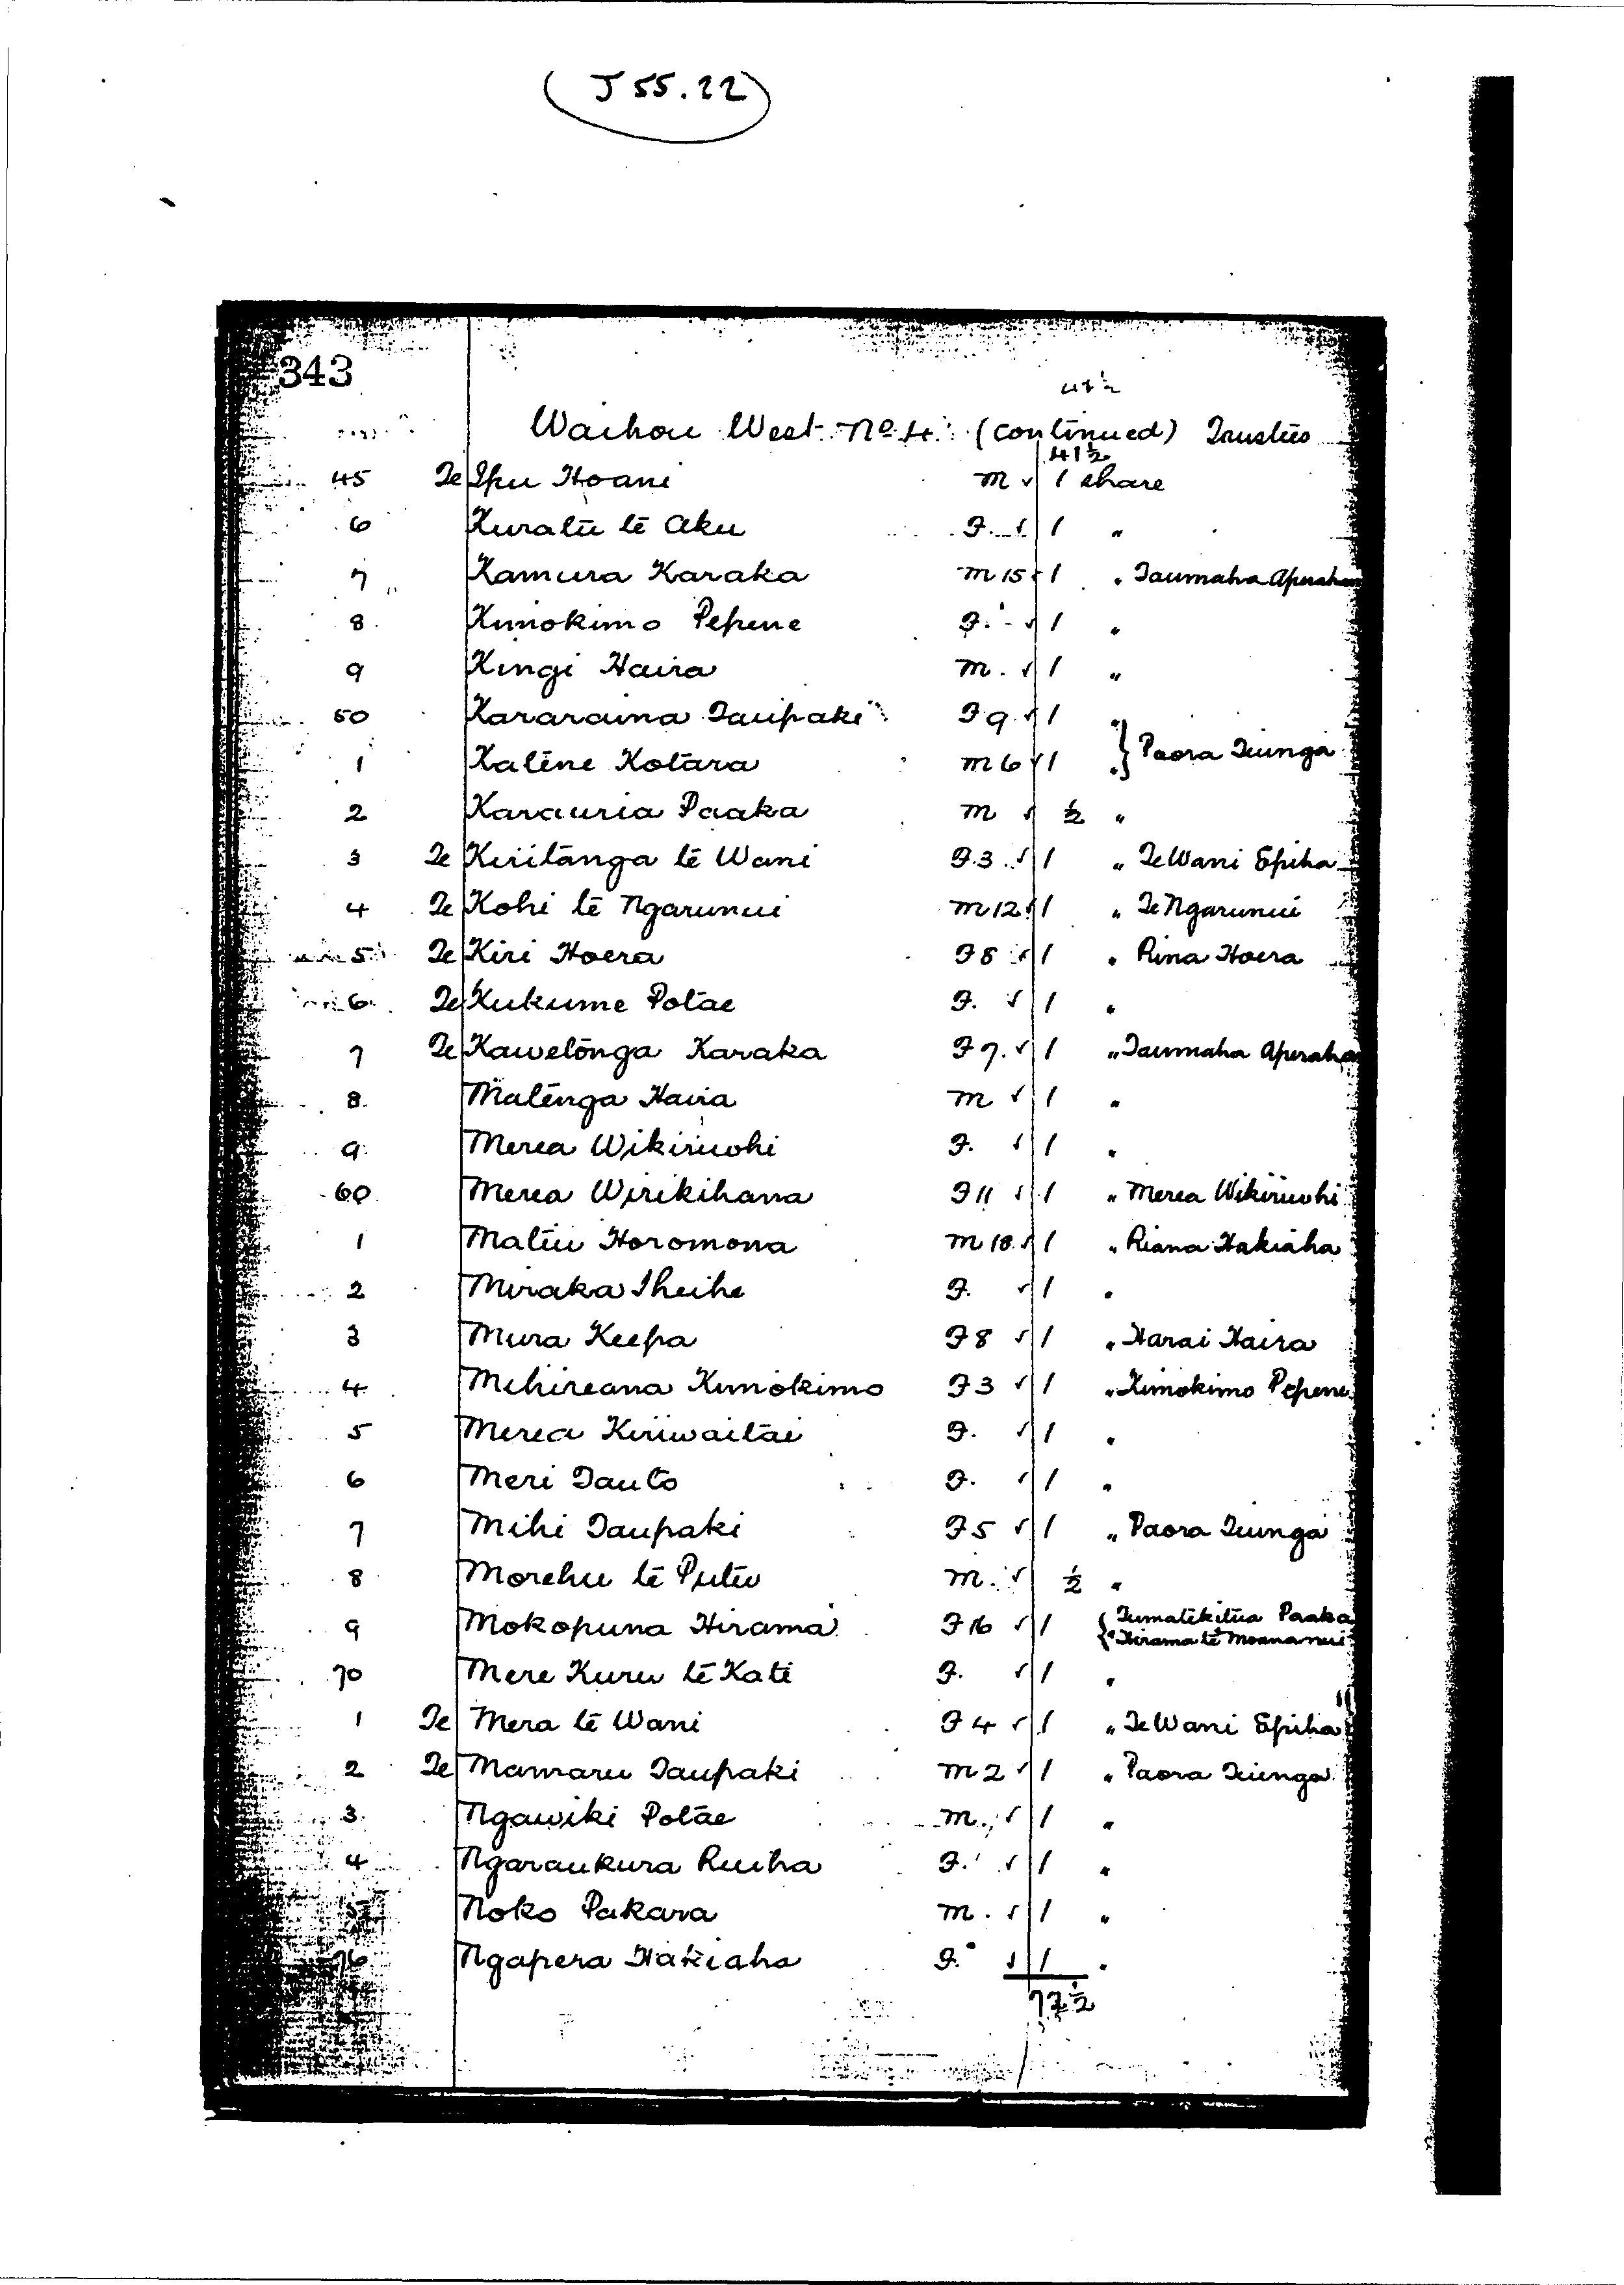 (J 55.22)
343
41½
Waihou West No 4 (continued) Trustees
41½
45 Te Ipu Hoani m ✓ 1 share
6 Kuratu te Aku F. ✓ 1 "
7 Kamura Karaka m 15 ✓ 1 " Taumaha Aperahama
8 Kimokimo Pepene F. ✓ 1 "
9 Kingi Haira m. ✓ 1 "
50 Kararaina Taupaki F 9 ✓ 1 "
1 Katene Kotara m 6 ✓ 1 " } Paora Tiunga
2 Karauria Paaka m ✓ ½ "
3 Te Kiritanga te Wani F. 3. ✓ 1 " Te Wani Epiha
4 Te Kohi te Ngarunui m 12 ✓ 1 " Te Ngarunui
5 Te Kiri Hoera F 8 ✓ 1 " Rina Hoera
6 Te Kukume Potae F. ✓ 1 "
7 Te Kawetonga Karaka F 7. ✓ 1 " Taumaha Aperaha
8. Matenga Haira m ✓ 1 "
9. Merea Wikiriwhi F. ✓ 1 "
60 Merea Wirikihana F 11 ✓ 1 " Merea Wikiriwhi
1 Matiu Horomona m 18. ✓ 1 " Riana Hakiaha
2 Miraka Iheihe F. ✓ 1 "
3 Mura Keepa F 8 ✓ 1 " Harai Haira
4 Mihireana Kimokimo F 3 ✓ 1 " Kimokimo Pepene
5 Merea Kiriwaitai F. ✓ 1 "
6 Meri Tauto F. ✓ 1 "
7 Mihi Taupaki F 5 ✓ 1 " Paora Tiunga
8 Morehu te Putu m. ✓ ½ "
9 Mokopuna Hirama F 16 ✓ 1 { Tumatekitua Paaka
" Hirama te Moananui
70 Mere Kuru te Kati F. ✓ 1 "
1 Te Mera te Wani F 4 ✓ 1 " Te Wani Epiha
2 Te Mamaru Taupaki m 2 ✓ 1 " Paora Tiunga
3. Ngawiki Potae m. ✓ 1 "
4 Ngaraukura Ruiha F. ✓ 1 "
5 Noko Pakara m. ✓ 1 "
76 Ngapera Hakiaha F. ✓ 1 "
72½